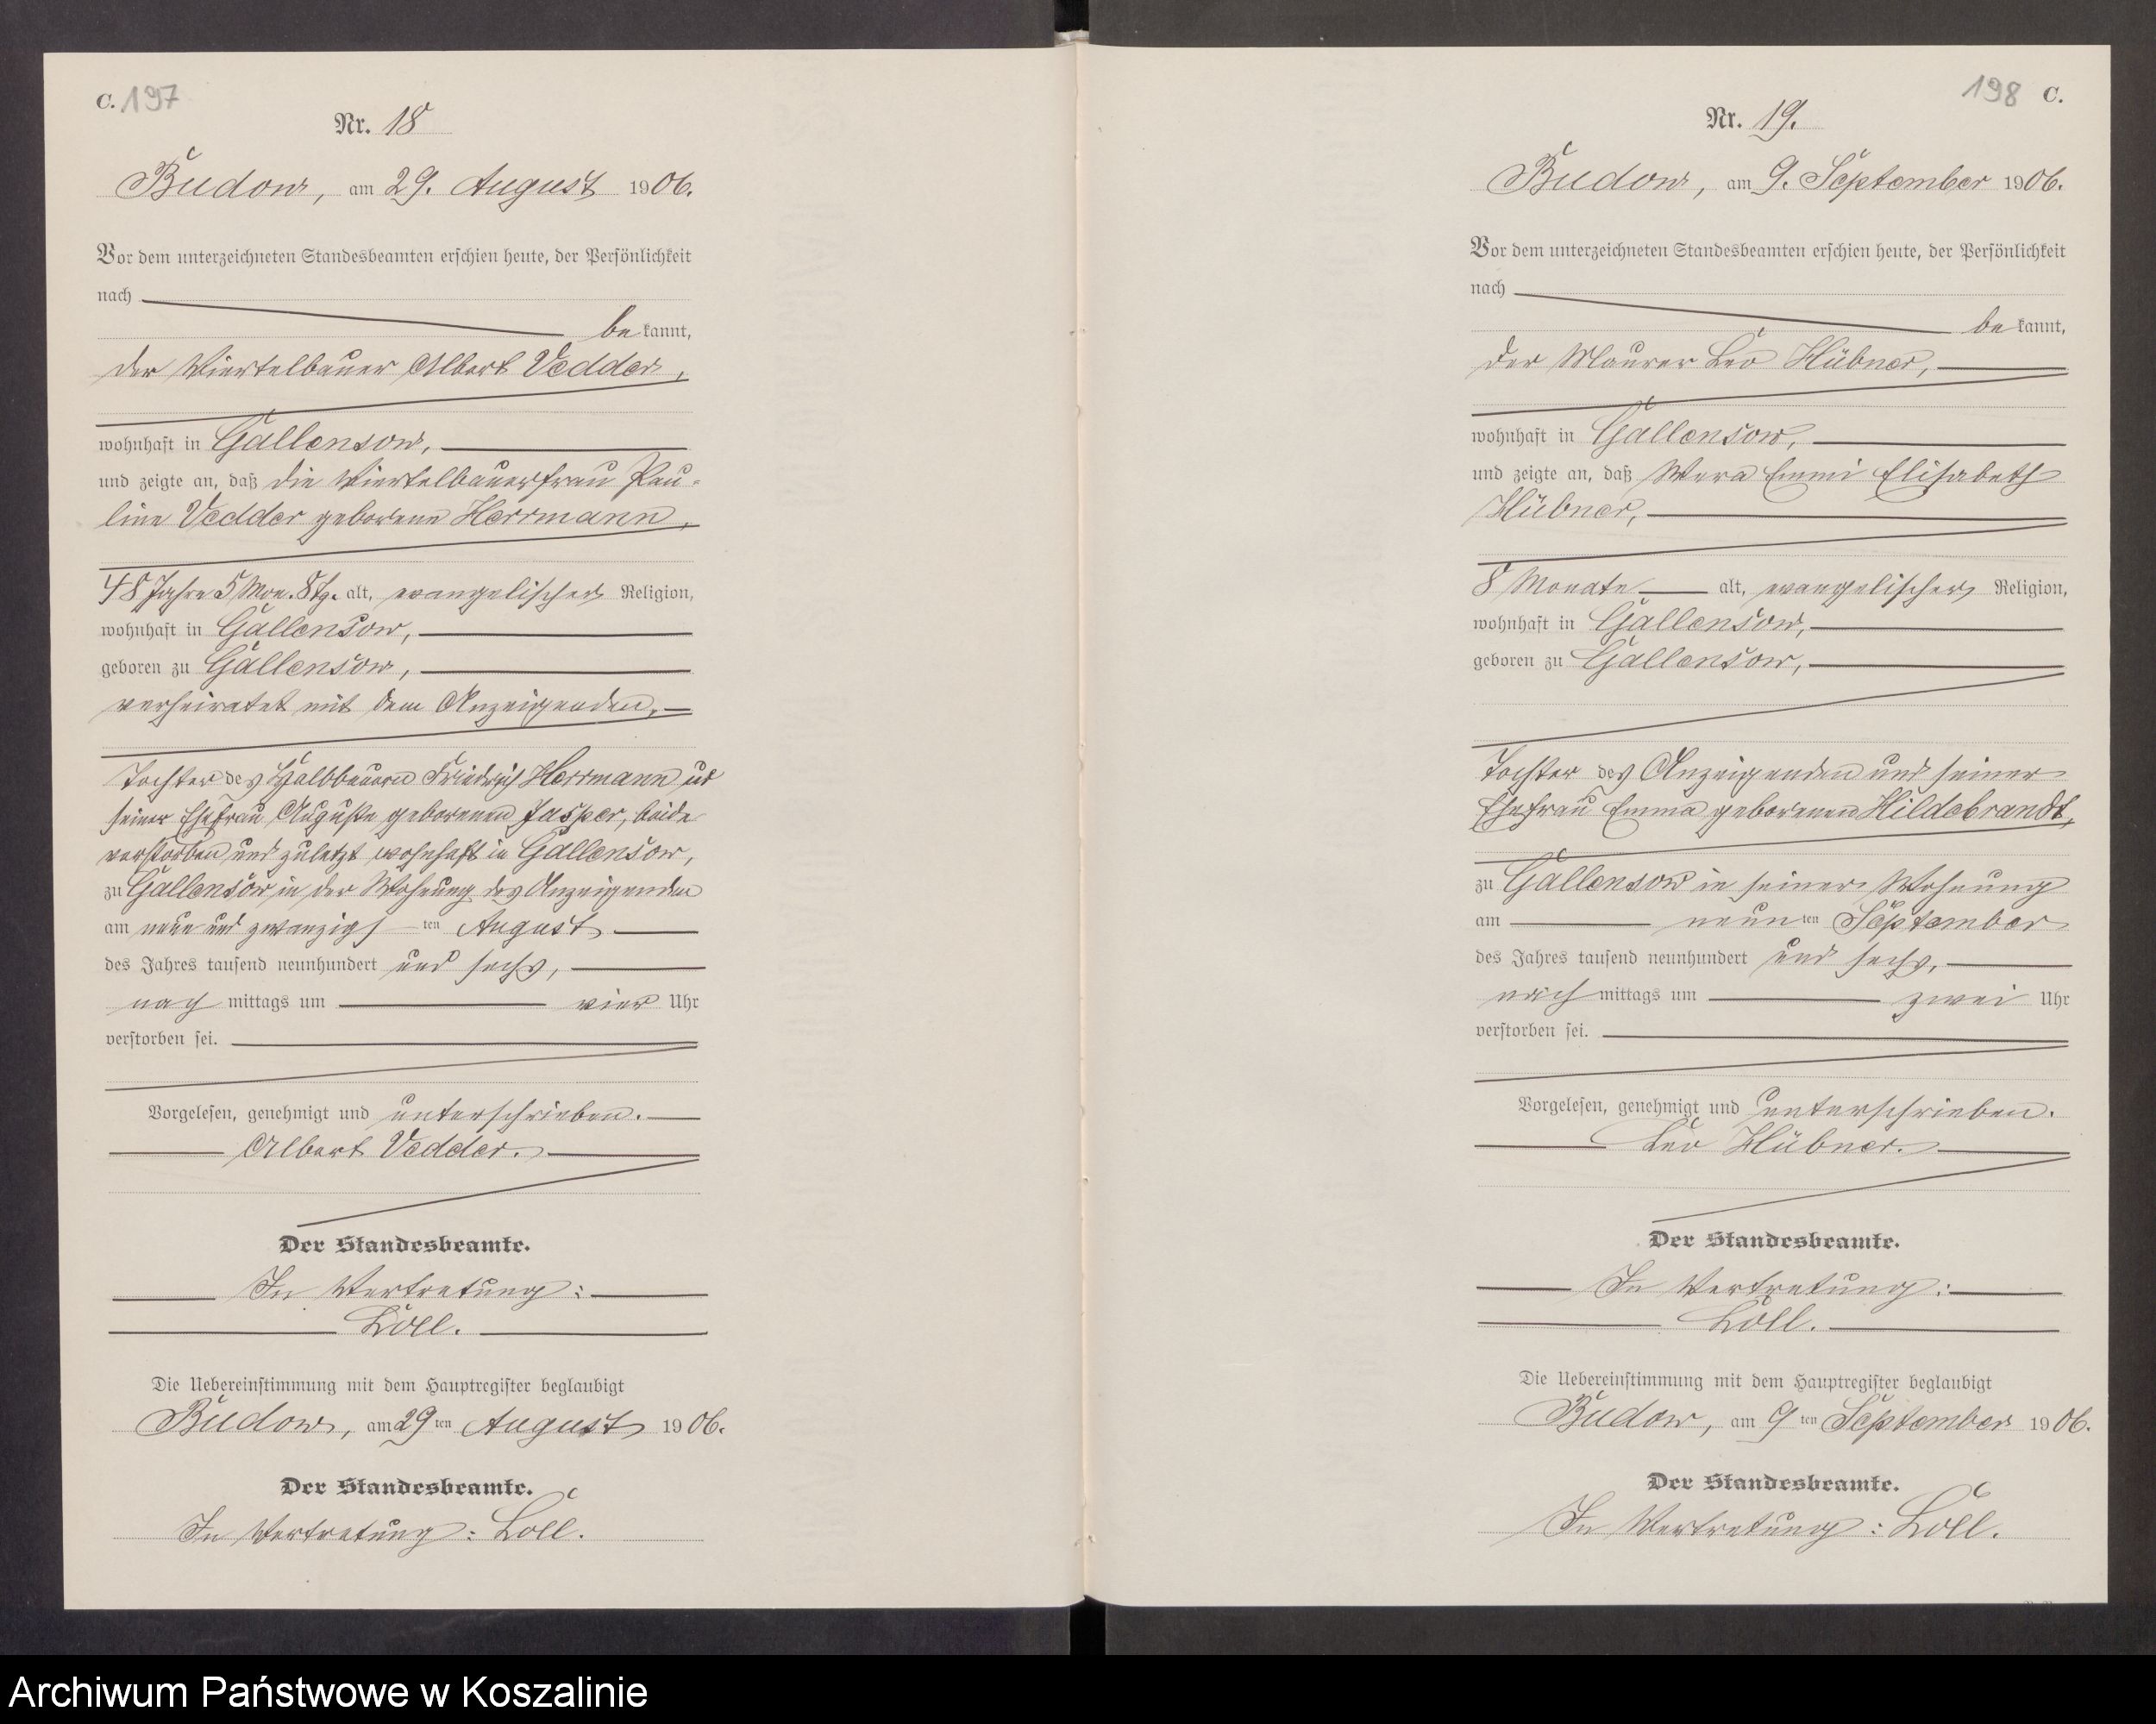 C. 197
Nr. 18
Budow, am 29. August 1906.
Vor dem unterzeichneten Standesbeamten erschien heute, der Persönlichkeit
nach
be kannt,
der Viertelbauer Albert Vedder,
wohnhaft in Gallensow,
und zeigte an, daß die Viertelbauerfrau Pau-
line Vedder geborene Herrmann,
48 Jahre 5 Mon. 8 Tg. alt, evangelischer Religion,
wohnhaft in Gallensow,
geboren zu Gallensow,
verheiratet mit dem Anzeigenden,
Tochter des Halbbauern Friedrich Herrmann ud
seiner Ehefrau Auguste geborenen Jasper, beide
verstorben und zuletzt wohnhaft in Gallensow,
zu Gallensow in der Wohnung des Anzeigenden
am neun und zwanzigs ten August
des Jahres tausend neunhundert und sechs,
nach mittags um vier Uhr
verstorben sei.
Vorgelesen, genehmigt und unterschrieben.
Albert Vedder.
Der Standesbeamte.
In Vertretung:
Löll.
Die Uebereinstimmung mit dem Hauptregister beglaubigt
Budow, am 29 ten August 1906.
Der Standesbeamte.
In Vertretung: Löll.
198 C.
Nr. 19.
Budow, am 9. September 1906.
Vor dem unterzeichneten Standesbeamten erschien heute, der Persönlichkeit
nach
be kannt,
der Maurer Leo Hübner,
wohnhaft in Gallensow,
und zeigte an, daß Wera Emmi Elisabeth
Hübner,
8 Monate alt, evangelischer Religion,
wohnhaft in Gallensow,
geboren zu Gallensow,
Tochter des Anzeigenden und seiner
Ehefrau Emma geborenen Hildebrandt,
zu Gallensow in seiner Wohnung
am neun ten September
des Jahres tausend neunhundert und sechs,
nach mittags um zwei Uhr
verstorben sei.
Vorgelesen, genehmigt und unterschrieben.
Leo Hübner.
Der Standesbeamte.
In Vertretung:
Löll.
Die Uebereinstimmung mit dem Hauptregister beglaubigt
Budow, am 9 ten September 1906.
Der Standesbeamte.
In Vertretung: Löll.
Archiwum Państwowe w Koszalinie